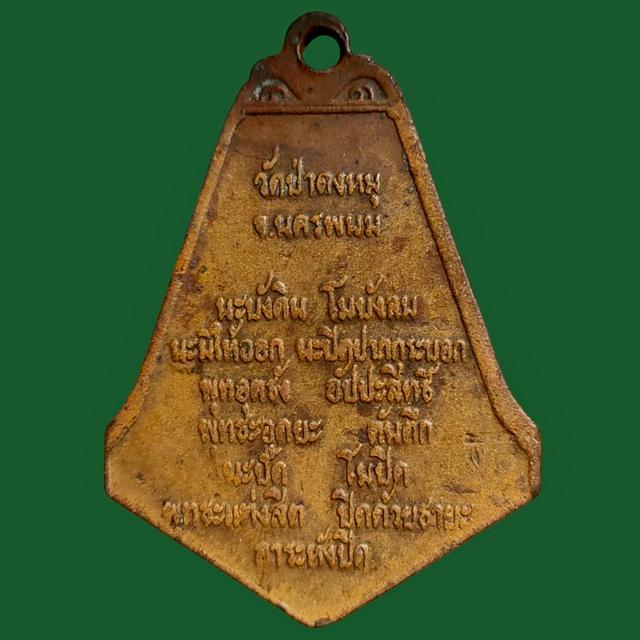 วัดป่าดงหมู
จ.นครพนม
นะบังดิน โมบังลม
นะมิให้ออก นะปิดปากกระบอก
พุทอุตรัง อัปปะสิทธิ์
พุทธะอุกยะ ตันติก
นะปัด โมปิด
พุทธะแห่งสิต ปิดด้วย
ปิด